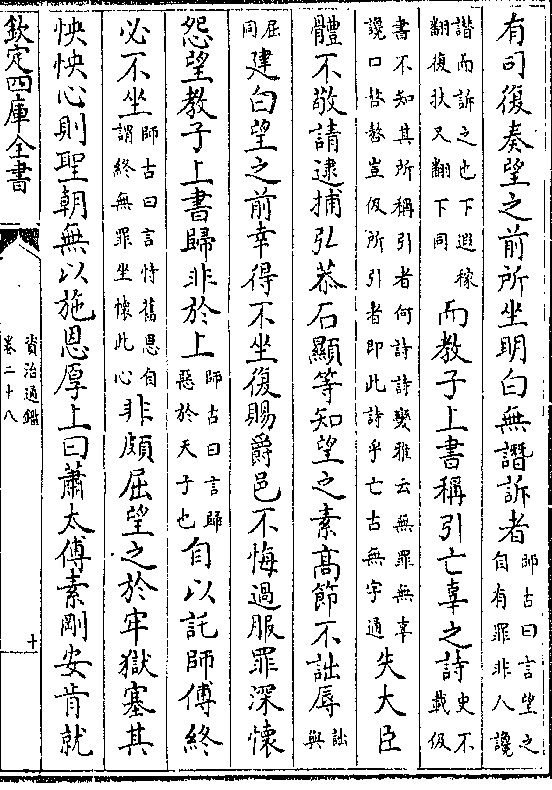 有司復奏望之前所坐明白無譖訴者師古曰言望之自有罪非人讒
譖而訴之也下遐稼翻復扶又翻下同而教子上書稱引亡辜之詩史不載伋
書不知其所稱引者何詩詩變雅云無罪無辜讒口嗸嗸豈伋所引者即此詩乎亡古無字通失大臣
體不敬請逮捕弘恭石顯等知望之素高節不詘辱詘與
屈同建白望之前幸得不坐復賜爵邑不悔過服罪深懷
怨望教子上書歸非於上師古曰言歸惡於天子也自以託師傅終
必不坐師古曰言恃舊恩自謂終無罪坐懷此心非頗屈望之於牢獄塞其
怏怏心則聖朝無以施恩厚上曰蕭太傅素剛安肯就
欽定四庫全書
資治通鑑
卷二十八
十